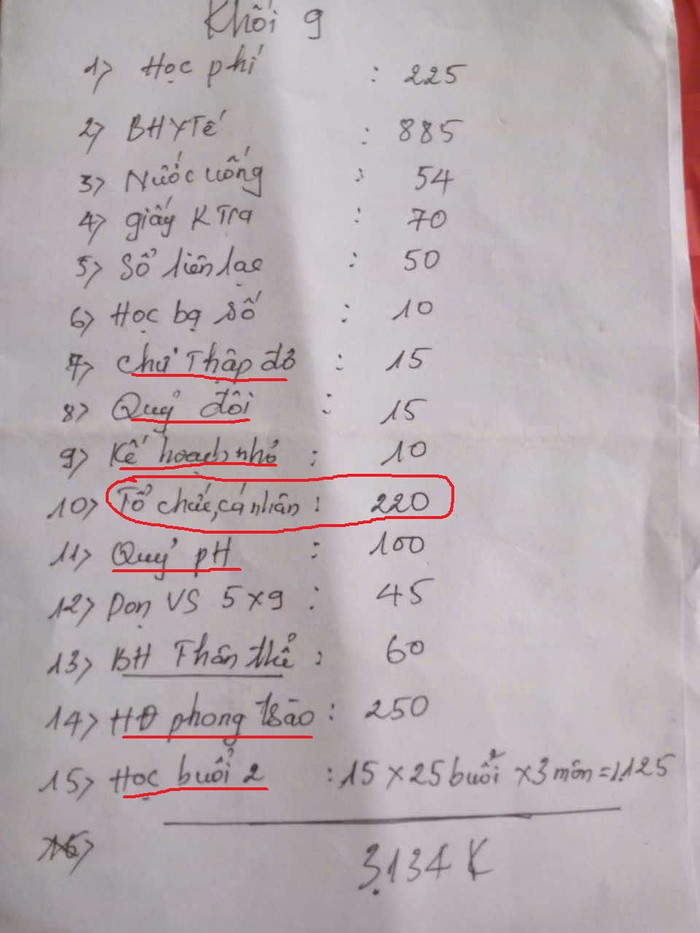 Khối 9
1) Học phí : 225
2) BHYTế : 885
3) Nước uống : 54
4) giấy K Tra : 70
5) Sổ liên lạc : 50
6) Học bạ số : 10
7) chữ Thập đỏ : 15
8) Quỹ đội : 15
9) Kế hoạch nhỏ : 10
10) Tổ chức, cá nhân : 220
11) Quỹ pH : 100
12) Dọn VS 5 x 9 : 45
13) BH Thân thể : 60
14) HĐ phong trào : 250
15) Học buổi 2 : 15 x 25 buổi x 3 môn = 1.125
16)
3.134 K